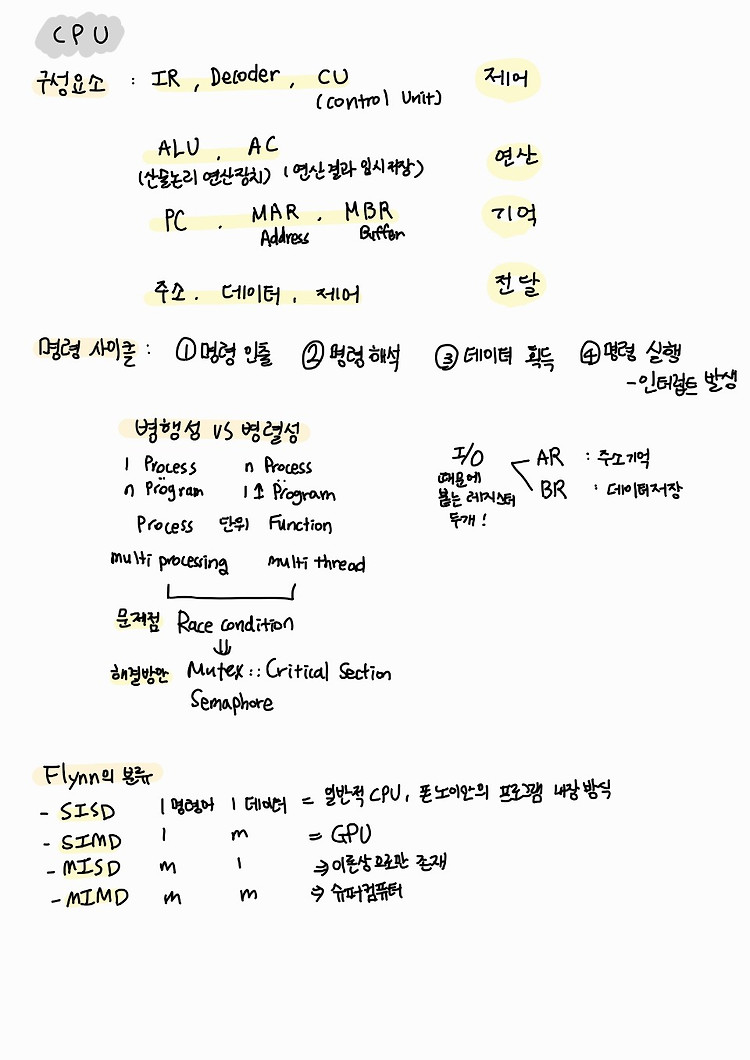 CPU
구성요소 : IR , Decoder , CU 제어
(control Unit)
ALU , AC 연산
(산술논리 연산장치) (연산결과 임시저장)
PC , MAR , MBR 기억
Address Buffer
주소 , 데이터 , 제어 전달
명령 사이클 : ① 명령 인출 ② 명령 해석 ③ 데이터 획득 ④ 명령 실행
- 인터럽트 발생
병행성 vs 병렬성
1 Process n Process
n Program 1↑ Program
Process 단위 Function
multi processing multi thread
I/O AR : 주소기억
때문에 BR : 데이터저장
붙는 레지스터
두개!
문제점 Race condition
⇓
해결방안 Mutex :: Critical Section
Semaphore
Flynn의 분류
- SISD 1 명령어 1 데이터 = 일반적 CPU, 폰노이만의 프로그램 내장 방식
- SIMD 1 m = GPU
- MISD m 1 ⇒ 이론상으로만 존재
- MIMD m m ⇒ 슈퍼컴퓨터